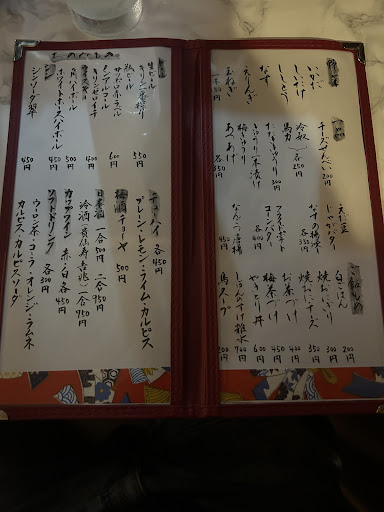 野菜
いかだ
ししとう
しいたけ
なす
えのき
玉ねぎ
一本 150円
一品
チーズせんべい 200円
冷奴
馬力
各250円
たたききゅうり 300円
きゅうり一本漬け
梅きゅう
各350円
枝豆
じゃがバター
なすの揚げ浸し
各400円
フライドポテト
コーンバター
なんこつ唐揚
450円
ご飯もの
白ごはん 200円
焼おにぎり 300円
焼おにチーズ 350円
お茶づけ 400円
梅茶づけ 450円
やきとり丼 600円
雑炊 700円
鳥スープ 200円
生ビール
キリン一番搾り 550円
瓶ビール
サッポロ赤ラベル 600円
ノンアルコール
キリンゼロイチ 400円
角ハイボール 500円
ホワイトホースハイボール 450円
シソソーダ割り 450円
チューハイ
プレーン・レモン・ライム・カルピス
各450円
梅酒
チョーヤ 500円
日本酒
一合 500円 二合 950円
一合 750円
カップワイン 赤・白 各450円
ソフトドリンク 各300円
ウーロン茶・コーラ・オレンジ・ラムネ
カルピス・カルピスソーダ